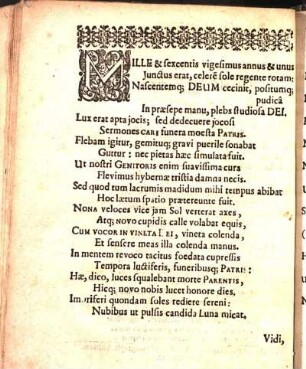 MILLE & sexcentis vigesimus annus & unus
Junctus erat, celerẽ sole regente rotam:
Nascentemq; DEUM cecinit, positumq;
pudicâ
In præsepe manu, plebs studiosa DEI.
Lux erat apta jocis; sed dedecuere jocosi
Sermones CARI funera moesta PATRIS.
Flebam igitur, gemituq; gravi puerile sonabat
Guttur: nec pietas hæc simulata fuit.
Ut nostri GENITORIS enim suavissima cura
Flevimus hybernæ tristia damna necis.
Sed quod tum lacrumis madidum mihi tempus abibat
Hoc lætum spatio prætereunte fuit.
NONA veloces vice jam Sol verterat axes,
Atq; NOVO cupidis calle volabat equis,
CUM VOCOR IN VINETA DEI, vineta colenda,
Et sensere meas illa colenda manus.
In mentem revoco tacitus foedata cupressis
Tempora luctiferis, funeribusq; PATRIS:
Hæ, dico, luces squalebant morte PARENTIS,
Hicq; novo nobis lucet honore dies.
Imbriferi quondam soles rediere sereni:
Nubibus ut pulsis candida Luna micat.
Vidi,